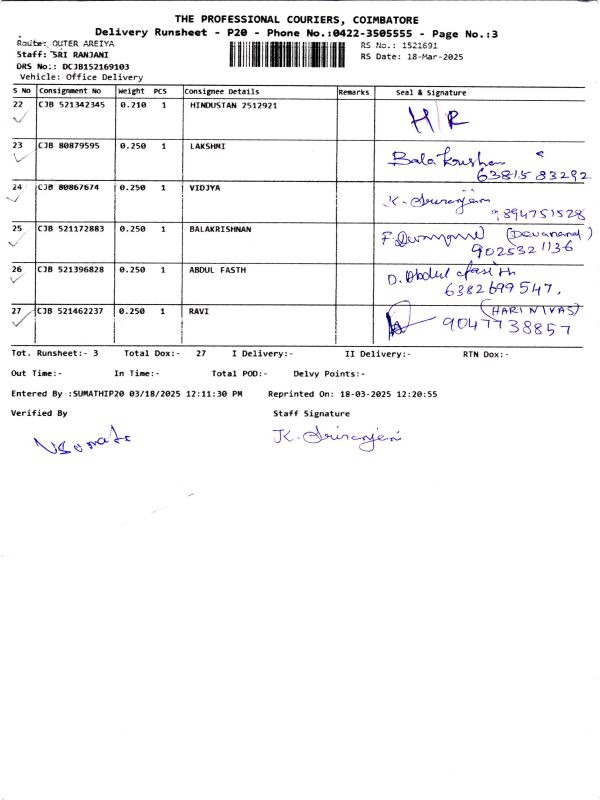 THE PROFESSIONAL COURIERS, COIMBATORE
Delivery Runsheet - P20 - Phone No.:0422-3505555 - Page No.:3
Route: OUTER AREIYA
RS No.: 1521691
Staff: SRI RANJANI
RS Date: 18-Mar-2025
DRS No.: DCJB152169103
Vehicle: Office Delivery
S No Consignment No Weight PCS Consignee Details Remarks Seal & Signature
22 CJB 521342345 0.210 1 HINDUSTAN 2512921 H/R
23 CJB 80879595 0.250 1 LAKSHMI Bala
6381583292
24 CJB 80867674 0.250 1 VIDJYA K. Sriranjeni
9894751528
25 CJB 521172883 0.250 1 BALAKRISHNAN (Devanand)
9025321136
26 CJB 521396828 0.250 1 ABDUL FASTH D. Abdul fasith
6382699547.
27 CJB 521462237 0.250 1 RAVI (HARINIVAS)
9047738857
Tot. Runsheet:- 3 Total Dox:- 27 I Delivery:- II Delivery:- RTN Dox:-
Out Time:- In Time:- Total POD:- Delvy Points:-
Entered By :SUMATHIP20 03/18/2025 12:11:30 PM Reprinted On: 18-03-2025 12:20:55
Verified By Staff Signature
K. Sriranjeni